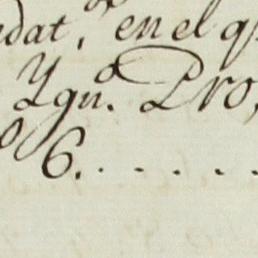 dat, en el q
Ygnº. Pro,
6. . . . . .